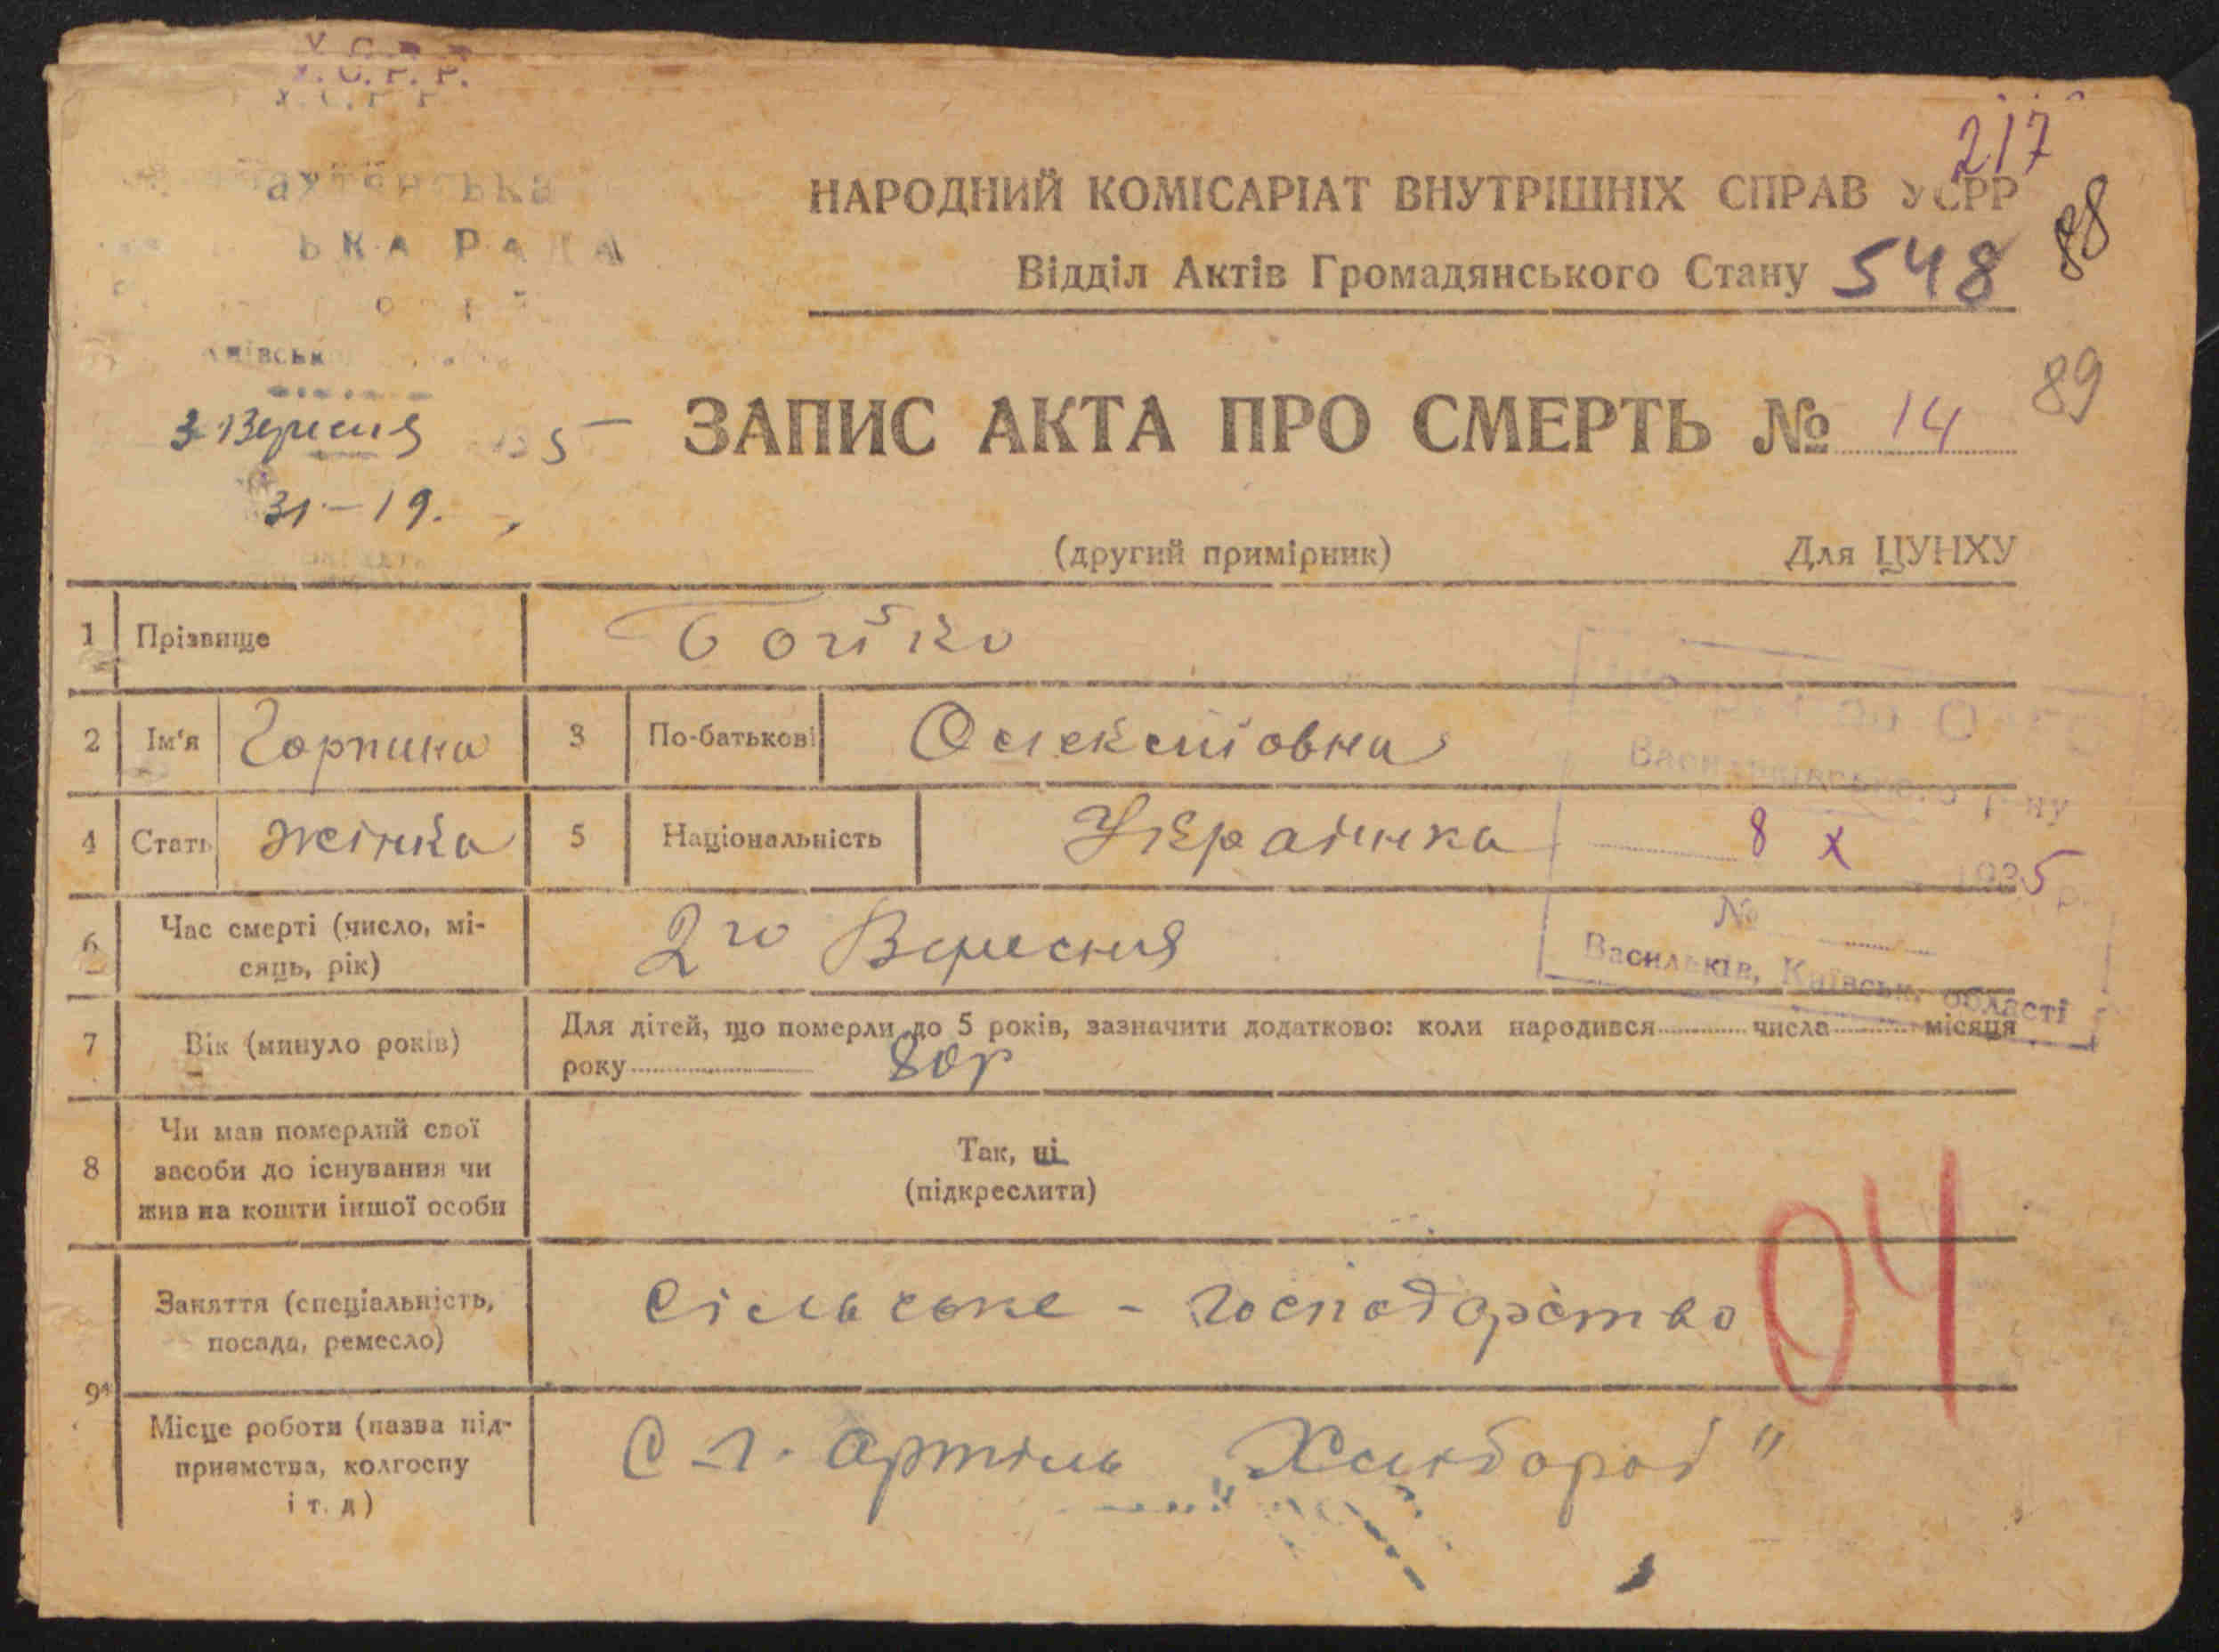 У.С.Р.Р.
217
НАРОДНИЙ КОМІСАРІАТ ВНУТРІШНІХ СПРАВ УСРР
88
ЬКА РАДА
Відділ Актів Громадянського Стану 548
3 Вересня 1935
ЗАПИС АКТА ПРО СМЕРТЬ № 14
89
31-19.
(другий примірник) Для ЦУНХУ
1 Прізвище Бойко
2 Ім'я Горпина 3 По-батькові Олексіїовна
Васильківського р-ну
4 Стать жінка 5 Національність Украінка
8 X 1935 р.
№
6 Час смерті (число, мі-
сяць, рік) 2го Вересня
Васильків, Київськ. області
7 Вік (минуло років) Для дітей, що померли до 5 років, зазначити додатково: коли народився числа місяця
року 80р
8 Чи мав померлий свої
засоби до існування чи
жив на кошти іншої особи
Так, ні
(підкреслити)
9 Заняття (спеціальність,
посада, ремесло) Сільське - господарство
04
Місце роботи (назва під-
приємства, колгоспу
і т. д)
С-г. артіль